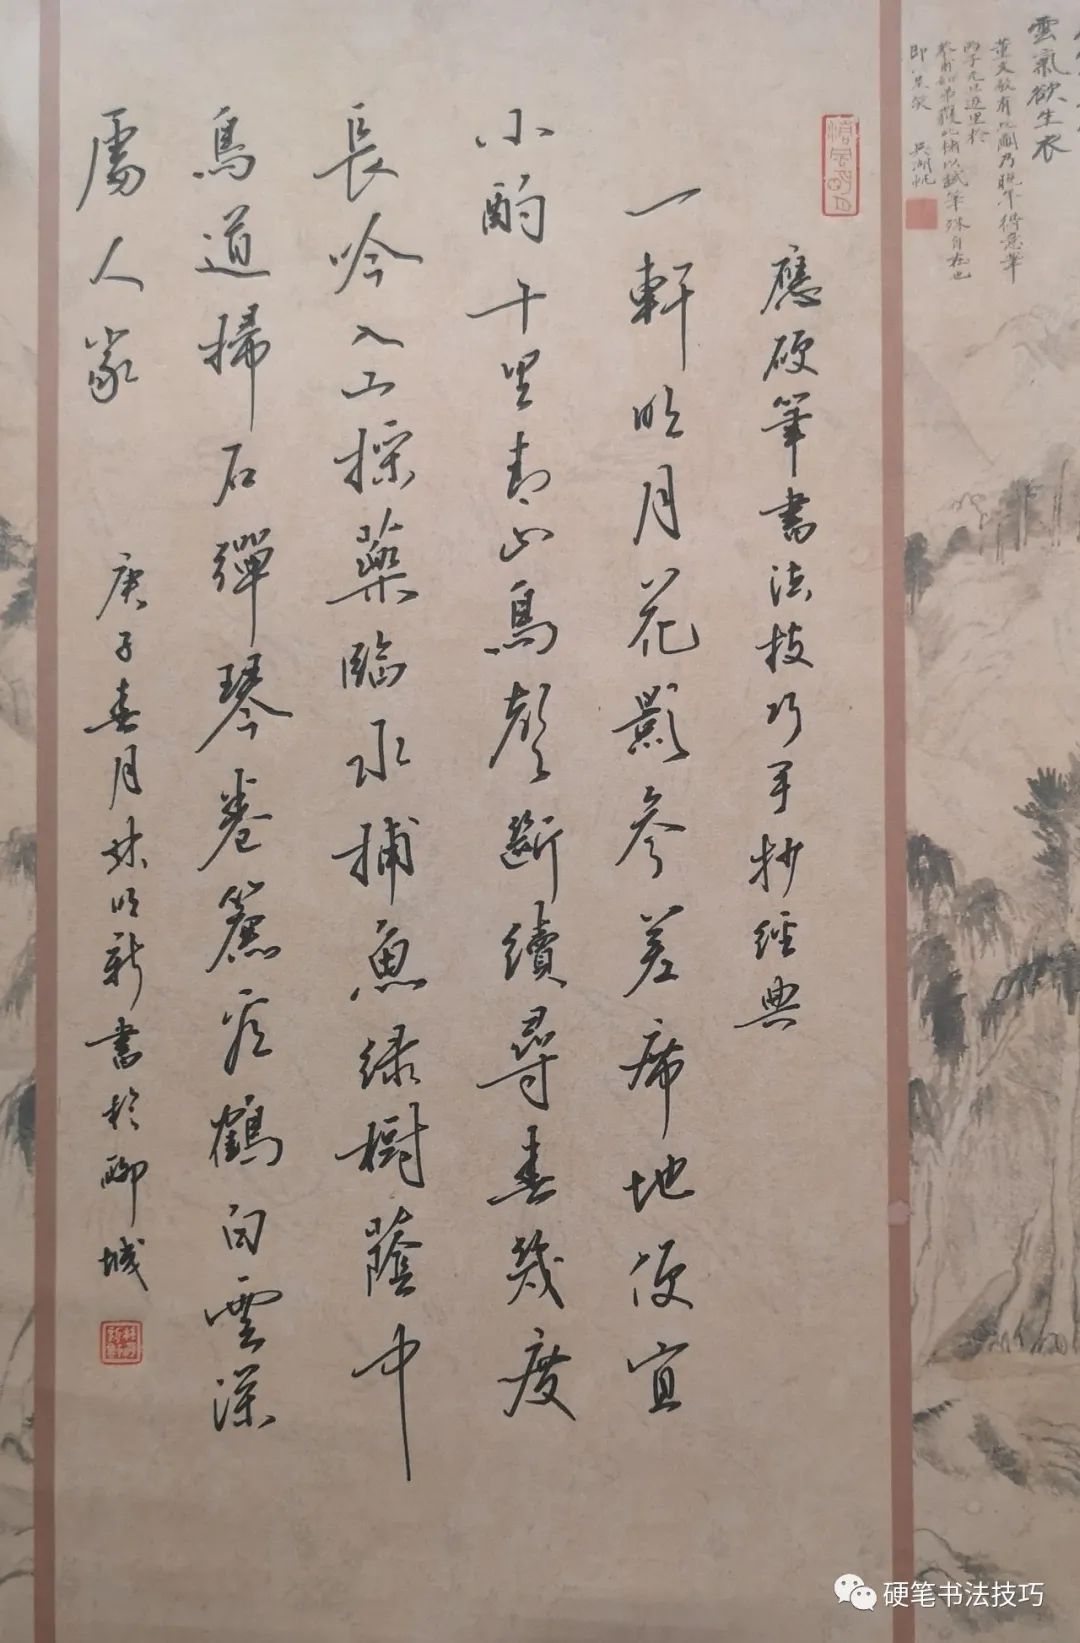 雲氣欲生衣
董文敏有此圖乃晚年得意筆
吳湖帆
應硬筆書法技巧手抄經典
一軒明月花影參差席地便宜
小酌十里青山鳥聲斷續尋春幾度
長吟入山採藥臨水捕魚綠樹蔭中
鳥道掃石彈琴卷簾看鶴白雲深
處人家
庚子春月林明新書於聊城
硬笔书法技巧